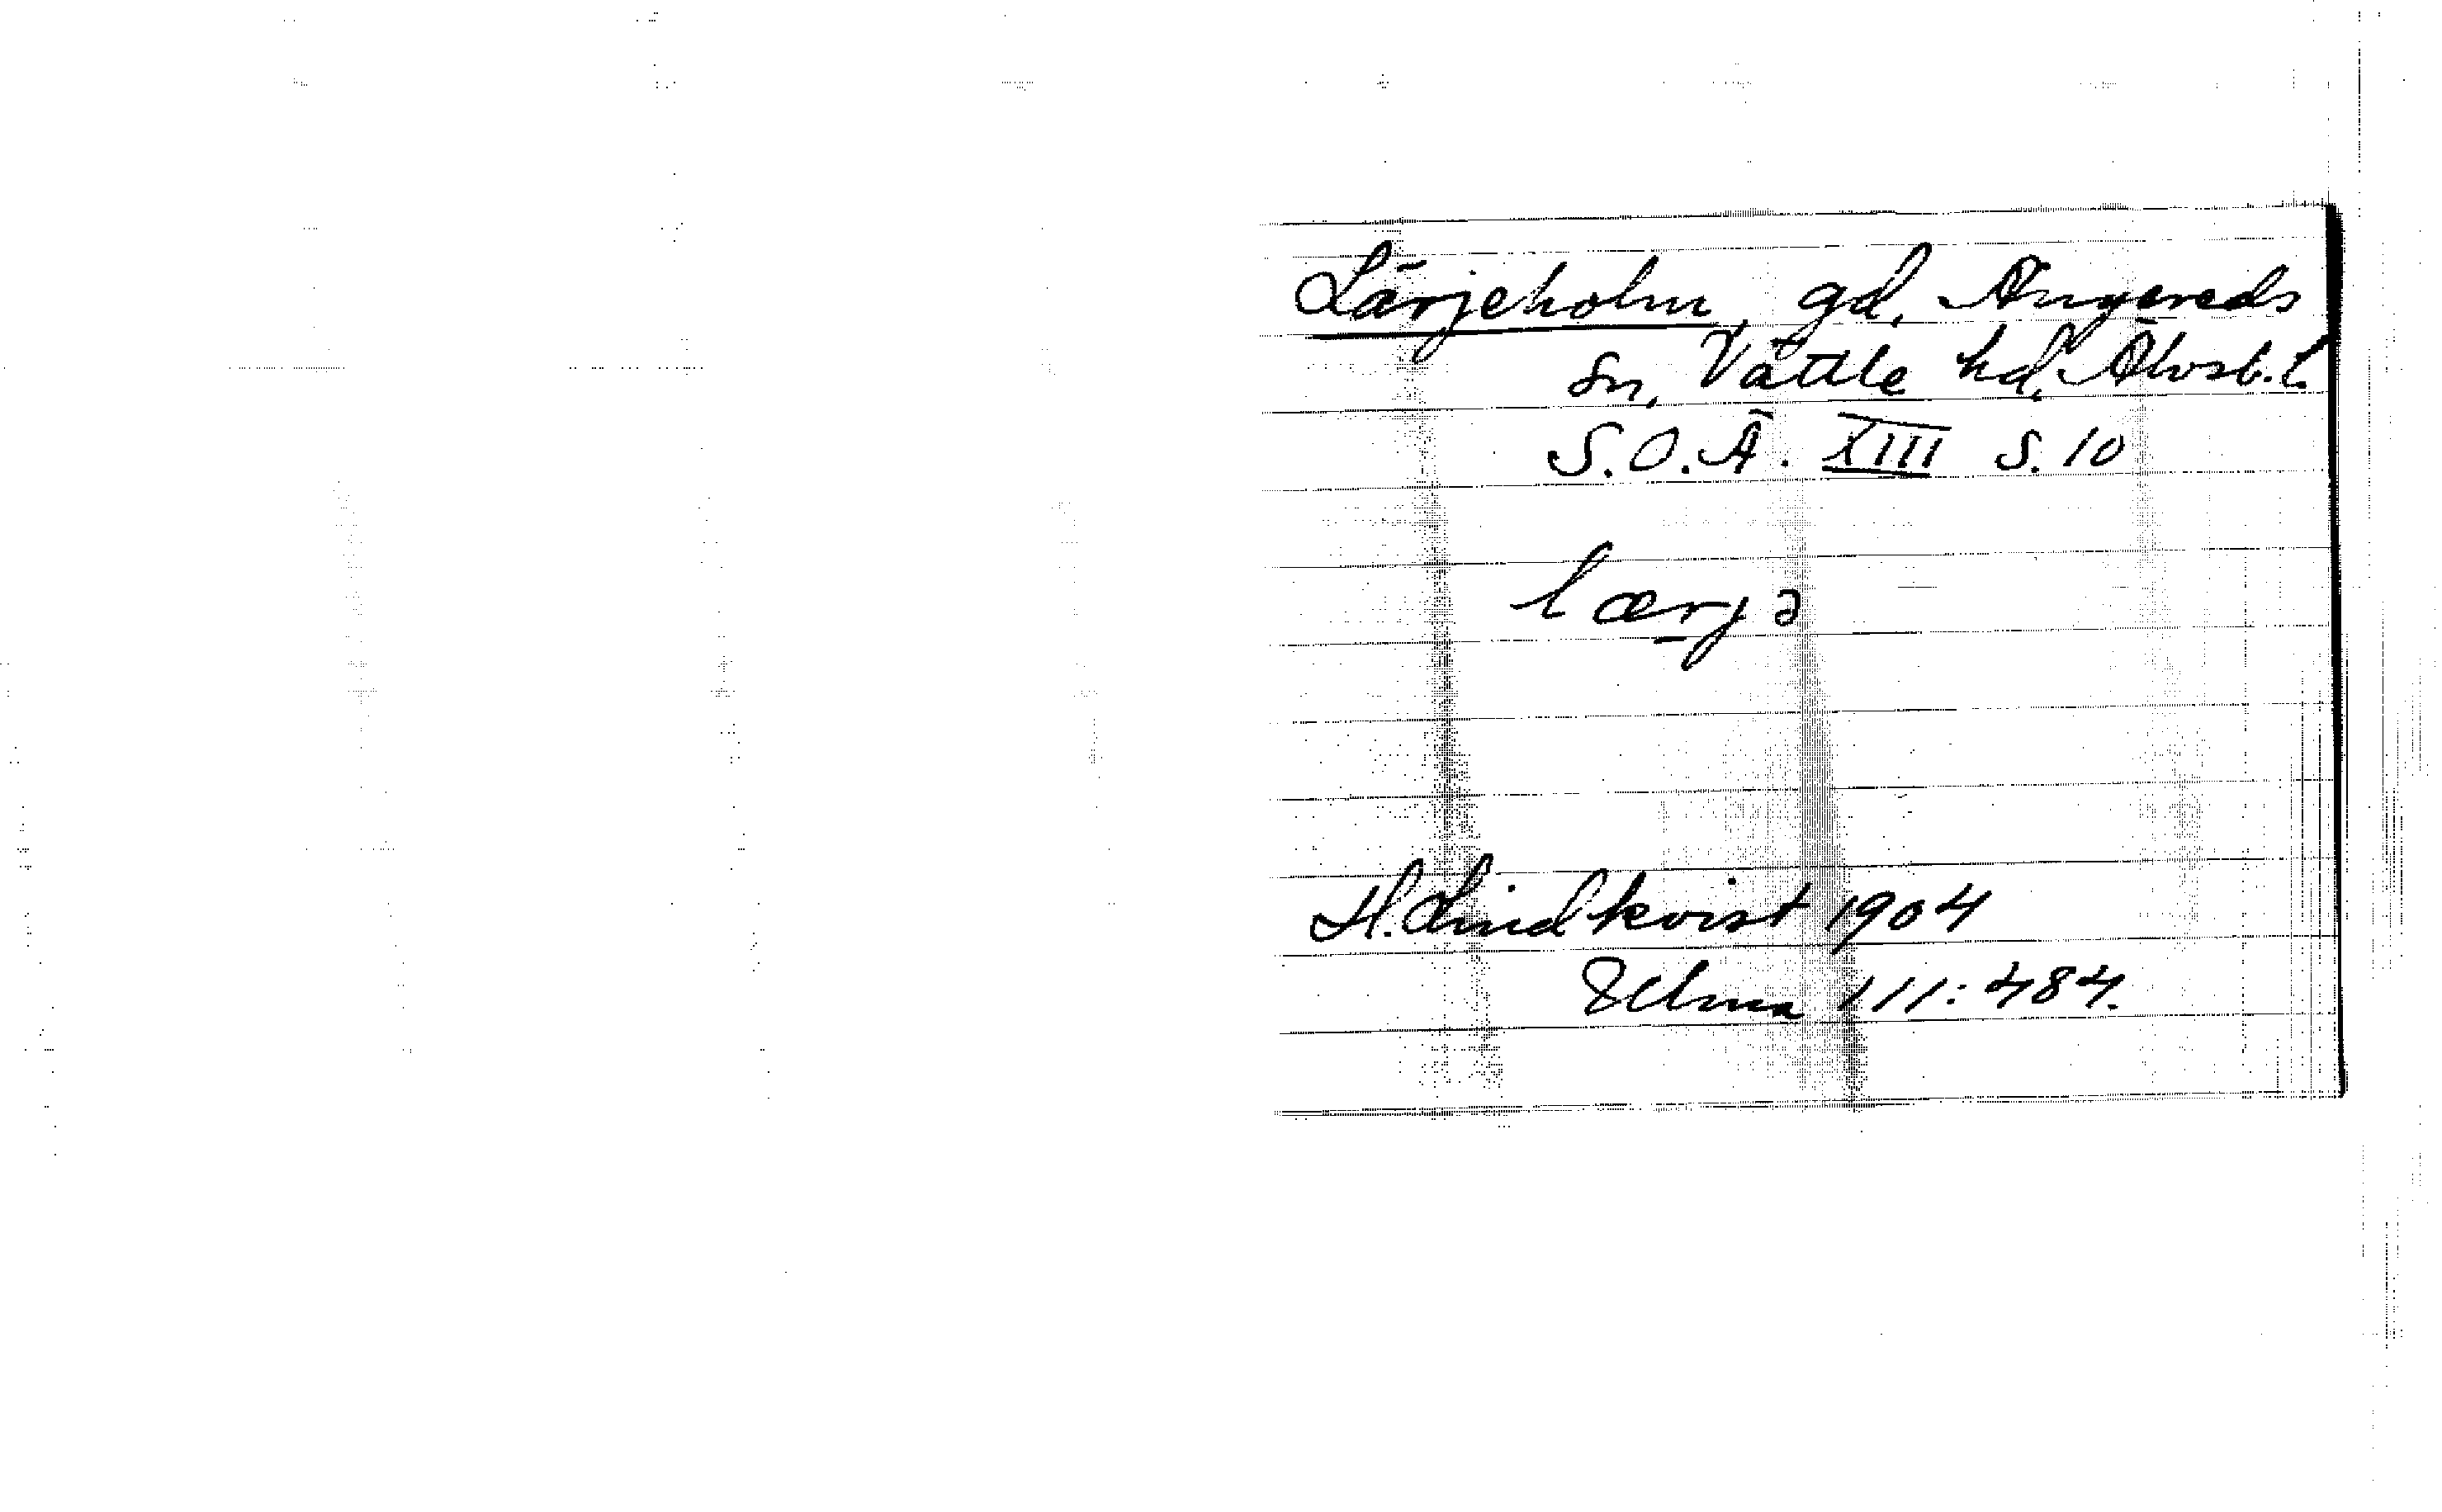 Lärjeholm, gd, Angereds
sn, Vättle hd, Älvsb. l.
S.O.Ä. XIII S. 10
lærjə
H. Lindkvist 1904
Ulma 111:484.